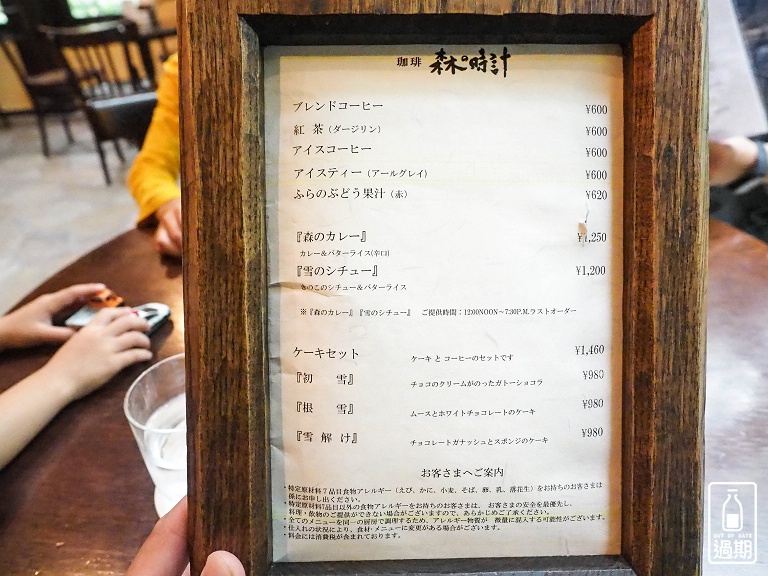 珈琲 森の時計
ブレンドコーヒー ¥600
紅 茶（ダージリン） ¥600
アイスコーヒー ¥600
アイスティー（アールグレイ） ¥600
ふらのぶどう果汁（赤） ¥620
『森のカレー』 ¥1,250
カレー＆バターライス(辛口)
『雪のシチュー』 ¥1,200
きのこのシチュー＆バターライス
※『森のカレー』『雪のシチュー』 ご提供時間：12:00NOON～7:30P.M.ラストオーダー
ケーキセット ケーキ と コーヒーのセットです ¥1,460
『初 雪』 チョコのクリームがのったガトーショコラ ¥980
『根 雪』 ムースとホワイトチョコレートのケーキ ¥980
『雪 解 け』 チョコレートガナッシュとスポンジのケーキ ¥980
お客さまへご案内
・特定原材料７品目食物アレルギー（えび、かに、小麦、そば、卵、乳、落花生）をお持ちのお客さまは
係にお申し出ください。
・特定原材料7品目以外の食物アレルギーをお持ちのお客さまは、お客さまの安全を最優先し、
料理・飲物のご提供ができない場合がございますので、あらかじめご了承ください。
・全てのメニューを同一の厨房で調理するため、アレルギー物質が 微量に混入する可能性がございます。
・仕入れの状況により、食材・メニューに変更がある場合がございます。
・料金には消費税が含まれております。
OUT OF DATE
過期